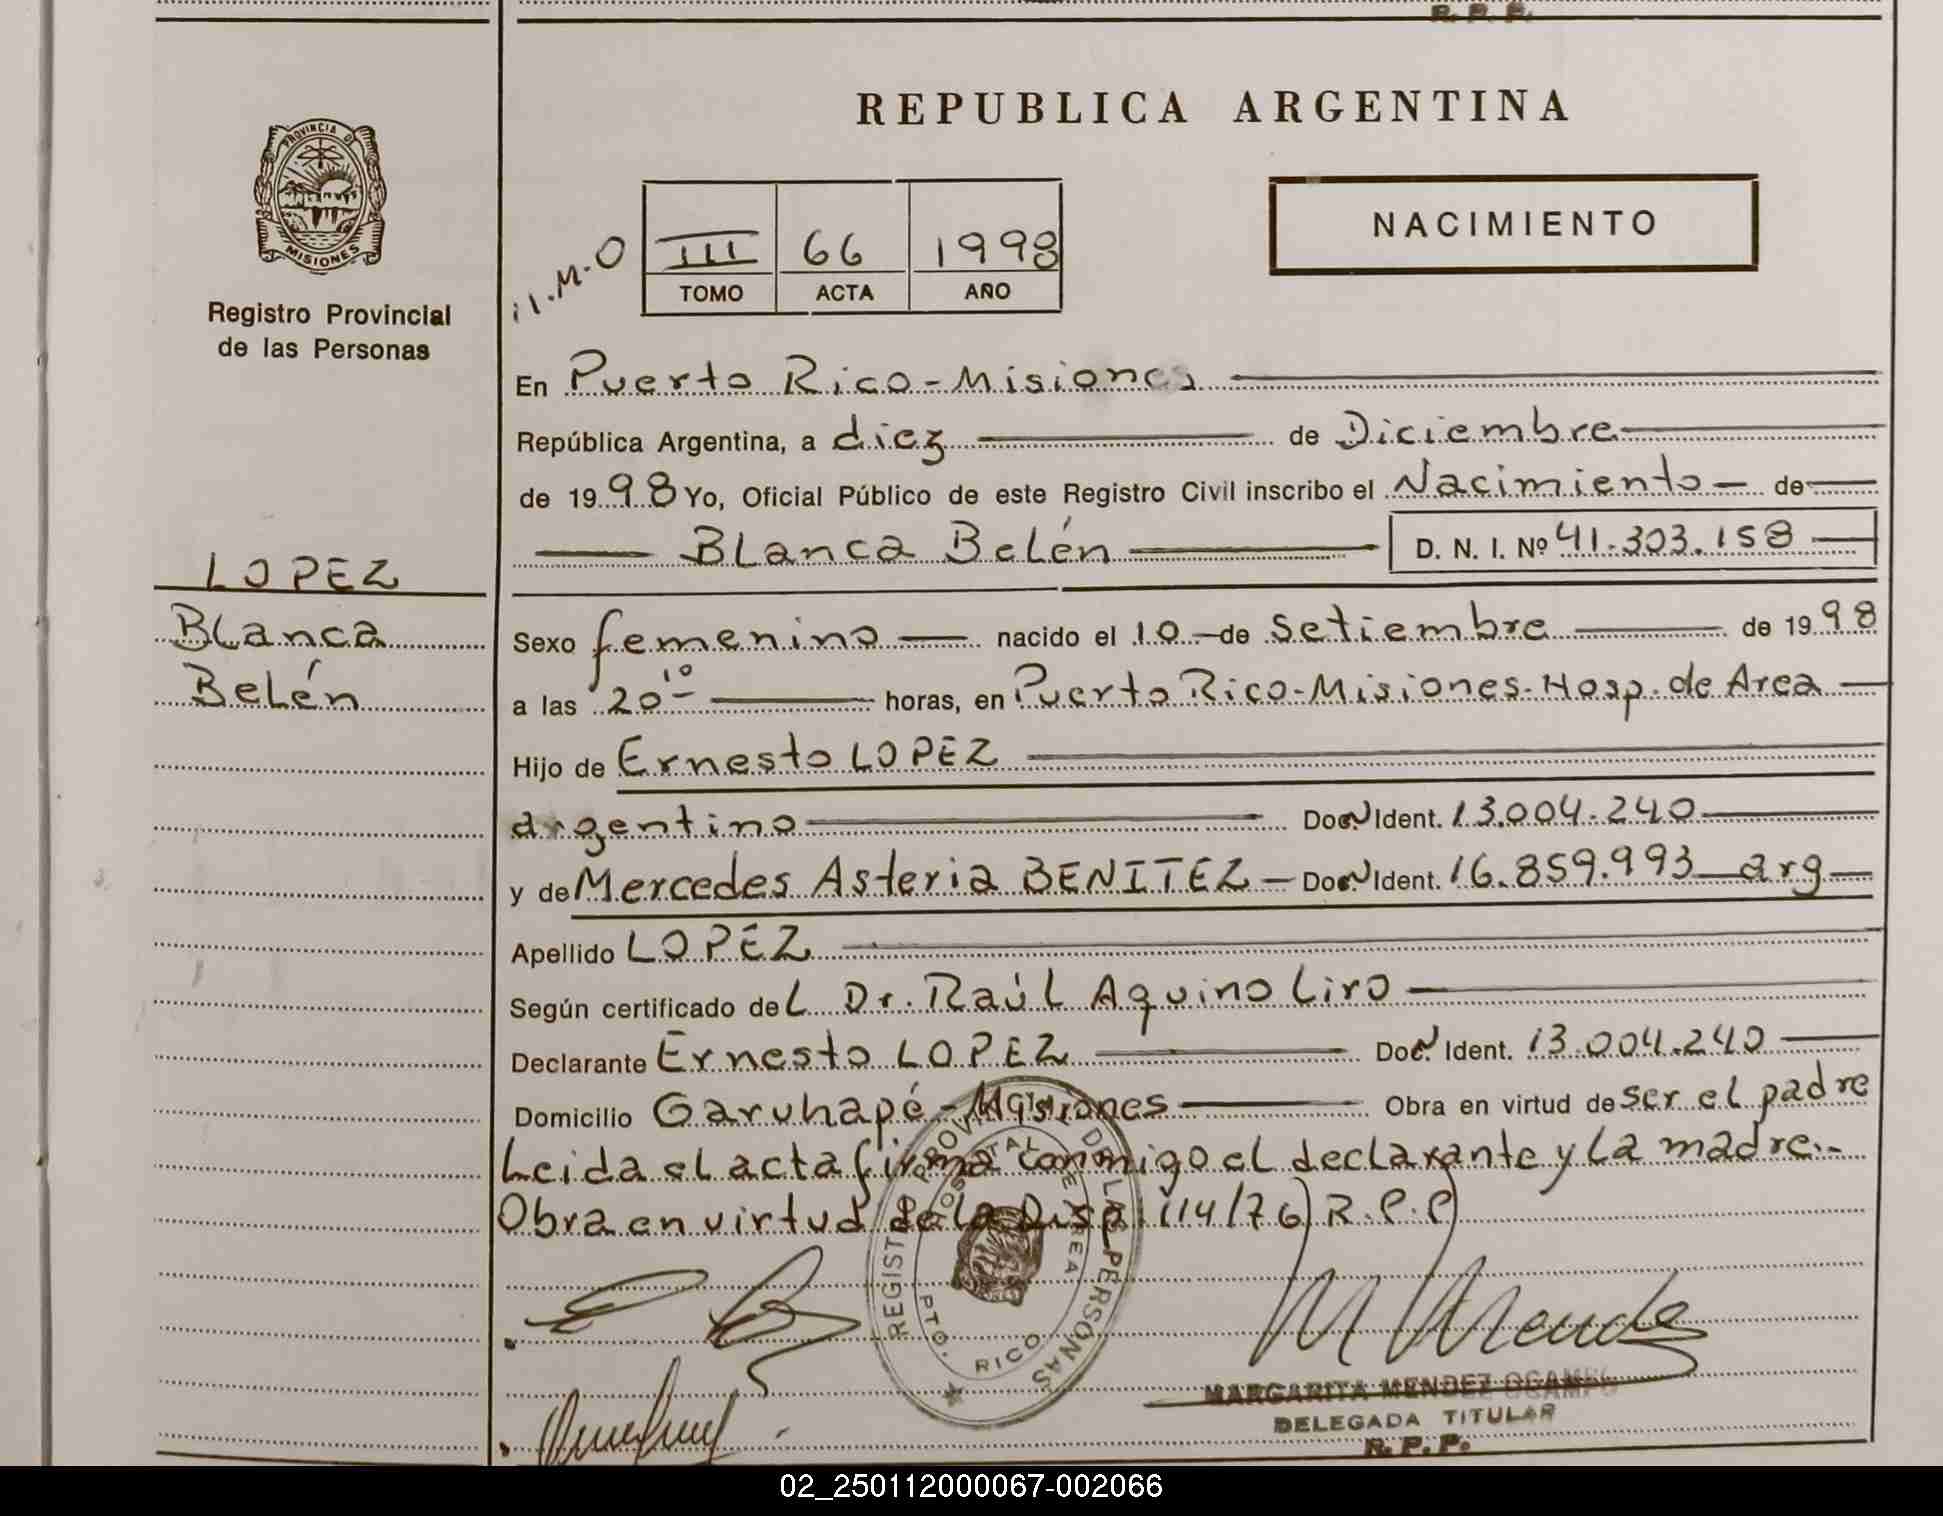 R. P. P.
REPUBLICA ARGENTINA
PROVINCIA DE
MISIONES
Registro Provincial
de las Personas
NACIMIENTO
III 66 1998
TOMO ACTA AÑO
En Puerto Rico - Misiones
República Argentina, a diez de Diciembre
de 1998 Yo, Oficial Público de este Registro Civil inscribo el Nacimiento de
Blanca Belén D. N. I. Nº 41.303.158
LOPEZ
Blanca
Belén
Sexo femenino nacido el 10 de Setiembre de 1998
a las 20 10 horas, en Puerto Rico-Misiones-Hosp. de Area
Hijo de Ernesto LOPEZ
argentino Doc. Ident. 13.004.240
y de Mercedes Asteria BENITEZ Doc. Ident. 16.859.993 arg
Apellido LOPEZ
Según certificado del Dr. Raúl Aquino Liro
Declarante Ernesto LOPEZ Doc. Ident. 13.004.240
Domicilio Garuhapé - Misiones Obra en virtud de ser el padre
Leida el acta firma conmigo el declarante y la madre.-
Obra en virtud de la Disp. 114/76) R.P.P)
REGISTRO PROV. DE LAS PERSONAS
HOSPITAL DE AREA
PTO. RICO
M Mendez
MARGARITA MENDEZ OCAMPO
DELEGADA TITULAR
R. P. P.
02_250112000067-002066